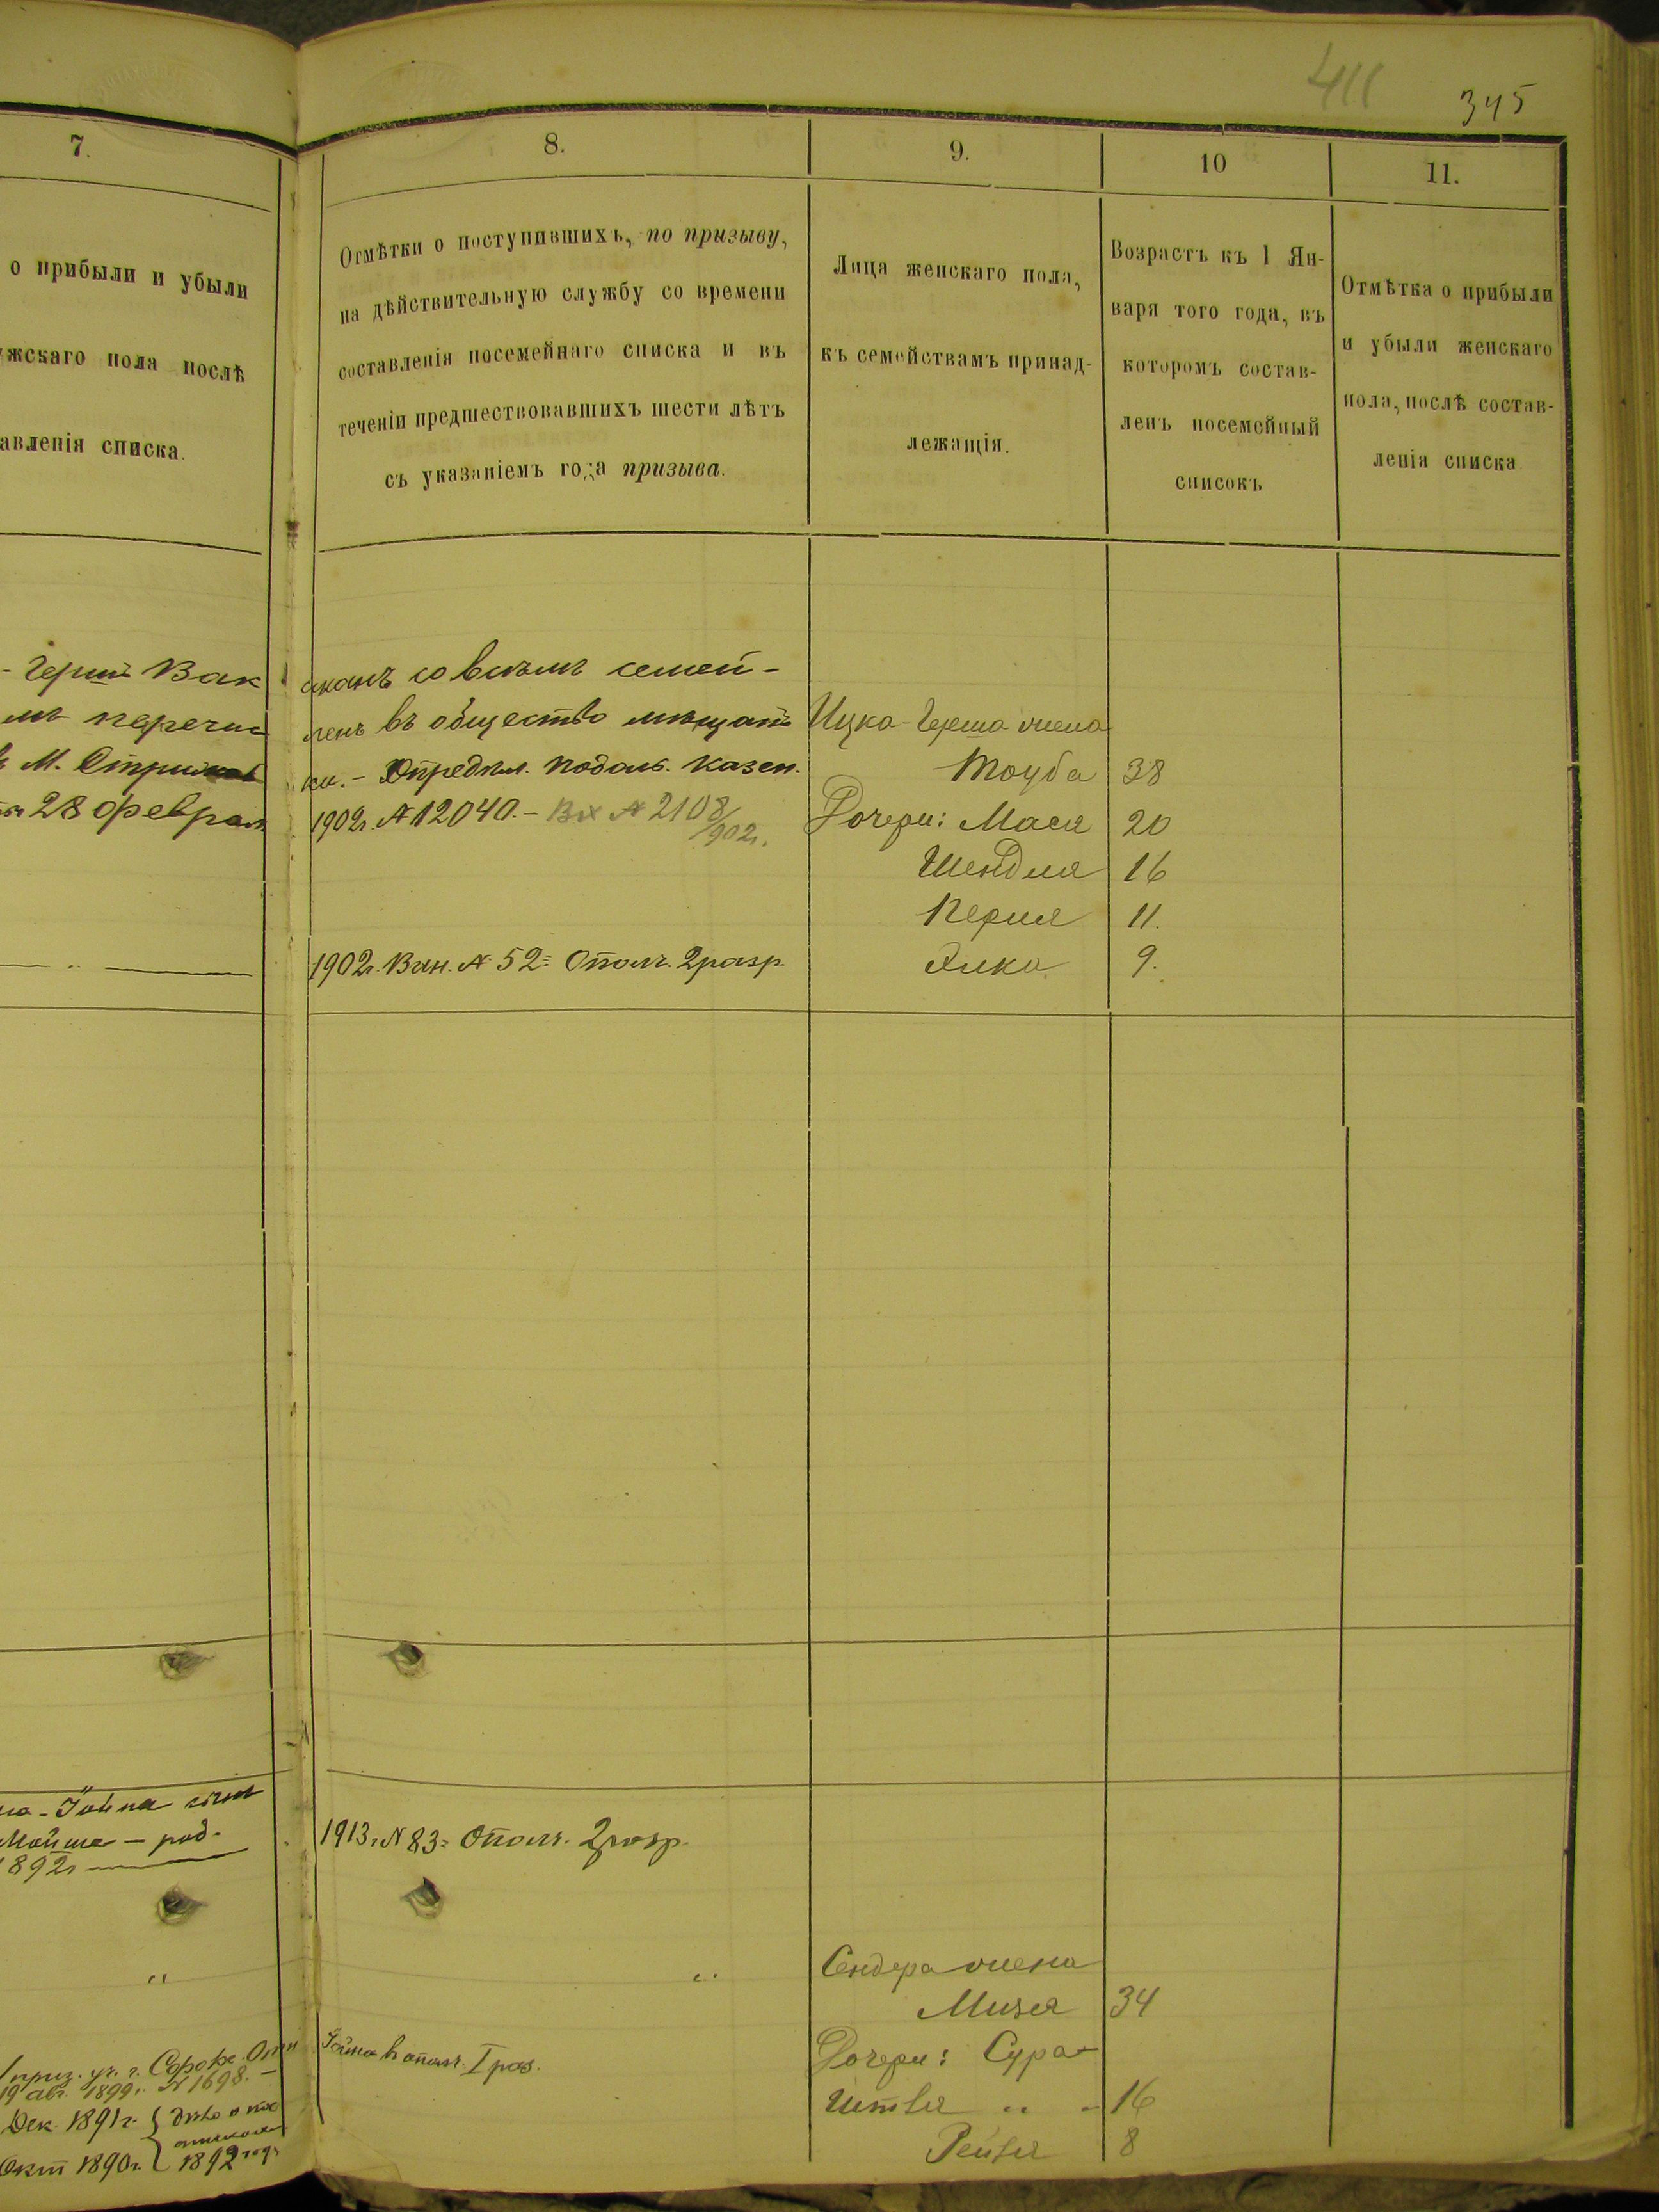 411
345
7.
8.
9.
10
11.
о прибыли и убыли
жскаго пола послѣ
авленія списка.
Отмѣтки о поступившихъ, по призыву,
на дѣйствительную службу со времени
составленія посемейнаго списка и въ
теченіи предшествовавшихъ шести лѣтъ
съ указаніемъ года призыва.
Лица женскаго пола,
къ семействамъ принад-
лежащія.
Возрастъ къ 1 Ян-
варя того года, въ
которомъ состав-
ленъ посемейный
списокъ
Отмѣтка о прибыли
и убыли женскаго
пола, послѣ состав-
ленія списка
Гершъ Вак
мъ перечис
М. Стрижав
28 феврал
со всѣмъ семей-
ленъ въ общество мѣщанъ
ки. - Опредѣл. Подоль. Казен.
1902г. № 12040. - Вх № 2108/902г.
1902г. Вин. № 52 = Ополч. 2 разр.
Ицка-Герша жена
Тоуба 38
Дочери: Мася 20
Шендля 16
Перля 11.
9.
Мойше - род.
1892г
1913г. № 83 = Ополч. 2 разр.
"
"
Сендера жена
Мизея 34
Дочери: Сура-
" - 16
Рейзя 8
приз. уч. г.
19 авг. 1899г. № 1698. -
Дек. 1891г.
Окт 1890г.
1892 году
ополч. I раз.